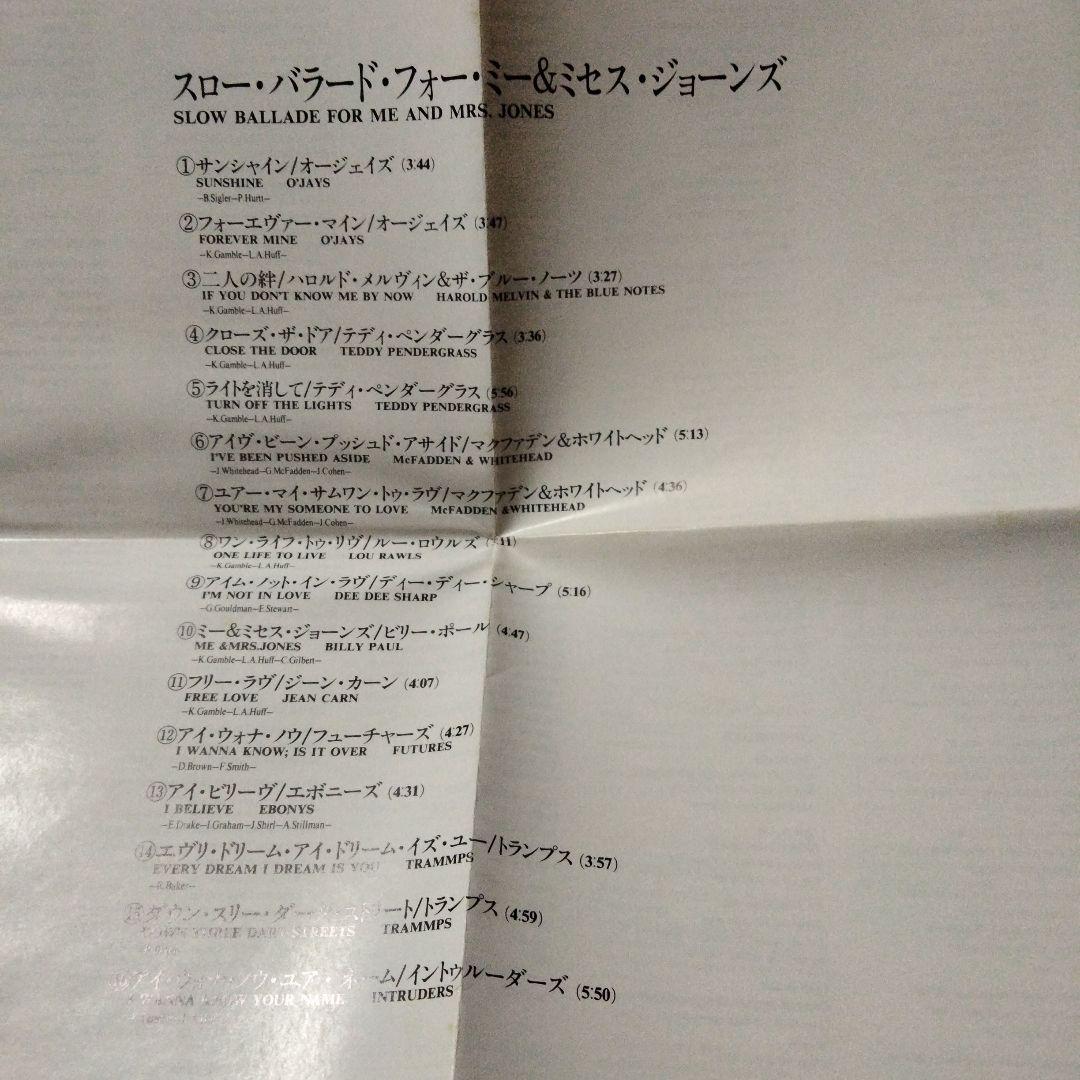 スロー・バラード・フォー・ミー&ミセス・ジョーンズ
SLOW BALLADE FOR ME AND MRS. JONES
①サンシャイン/オージェイズ (3:44)
SUNSHINE O'JAYS
—B.Sigler—P.Hurtt—
②フォーエヴァー・マイン/オージェイズ (3:47)
FOREVER MINE O'JAYS
—K.Gamble—L.A.Huff—
③二人の絆/ハロルド・メルヴィン&ザ・ブルー・ノーツ (3:27)
IF YOU DON'T KNOW ME BY NOW HAROLD MELVIN & THE BLUE NOTES
—K.Gamble—L.A.Huff—
④クローズ・ザ・ドア/テディ・ペンダーグラス (3:36)
CLOSE THE DOOR TEDDY PENDERGRASS
—K.Gamble—L.A.Huff—
⑤ライトを消して/テディ・ペンダーグラス (5:56)
TURN OFF THE LIGHTS TEDDY PENDERGRASS
—K.Gamble—L.A.Huff—
⑥アイヴ・ビーン・プッシュド・アサイド/マクファデン&ホワイトヘッド (5:13)
I'VE BEEN PUSHED ASIDE McFADDEN & WHITEHEAD
—J.Whitehead—G.McFadden—J.Cohen—
⑦ユアー・マイ・サムワン・トゥ・ラヴ/マクファデン&ホワイトヘッド (4:36)
YOU'RE MY SOMEONE TO LOVE McFADDEN &WHITEHEAD
—J.Whitehead—G.McFadden—J.Cohen—
⑧ワン・ライフ・トゥ・リヴ/ルー・ロウルズ
ONE LIFE TO LIVE LOU RAWLS
—K.Gamble—L.A.Huff—
⑨アイム・ノット・イン・ラヴ/ディー・ディー・シャープ (5:16)
I'M NOT IN LOVE DEE DEE SHARP
—G.Gouldman—E.Stewart—
⑩ミー&ミセス・ジョーンズ/ビリー・ポール (4:47)
ME &MRS.JONES BILLY PAUL
—K.Gamble—L.A.Huff—C.Gilbert—
⑪フリー・ラヴ/ジーン・カーン (4:07)
FREE LOVE JEAN CARN
—K.Gamble—L.A.Huff—
⑫アイ・ウォナ・ノウ/フューチャーズ (4:27)
I WANNA KNOW; IS IT OVER FUTURES
—D.Brown—F.Smith—
⑬アイ・ビリーヴ/エボニーズ (4:31)
I BELIEVE EBONYS
—E.Drake—I.Graham—J.Shirl—A.Stillman—
⑭エヴリ・ドリーム・アイ・ドリーム・イズ・ユー/トランプス (3:57)
EVERY DREAM I DREAM IS YOU TRAMMPS
—R.Baker—
ダウン・スリー・ダーク・ストリート/トランプス (4:59)
DOWN THREE DARK STREETS TRAMMPS
アイ・ウォナ・ノウ・ユア・ネーム/イントゥルーダーズ (5:50)
I WANNA KNOW YOUR NAME INTRUDERS